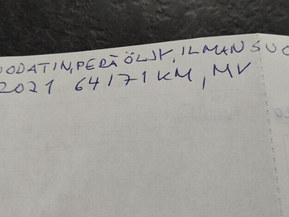 UODATIN, PERÄÖLJY, ILMANSUO
2021 64171 KM, MV